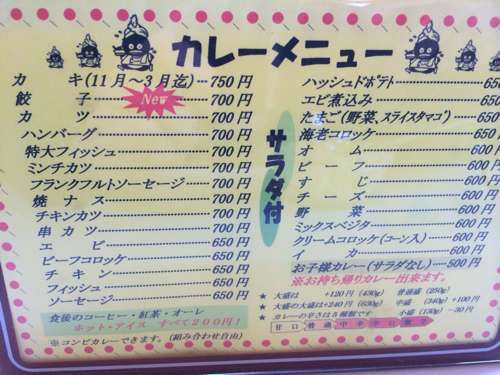 カレーメニュー
カキ(11月～3月迄)…750円
餃子 New 700円
カツ 700円
ハンバーグ 700円
特大フィッシュ 700円
ミンチカツ 700円
フランクフルトソーセージ 700円
焼ナス 700円
チキンカツ 700円
串カツ 700円
エビ 650円
ビーフコロッケ 650円
チキン 650円
フィッシュ 650円
ソーセージ 650円
食後のコーヒー・紅茶・オーレ
ホット・アイス すべて200円!
※コンビカレーできます。(組み合わせ自由)
サラダ付
ハッシュドポテト 650
エビ煮込み 650
たまご(野菜、スライスタマゴ) 650
海老コロッケ 650円
オム 600円
ビーフ 600円
すじ 600円
チーズ 600円
野菜 600円
ミックスベジタ 600円
クリームコロッケ(コーン入) 600円
イカ 600円
お子様カレー(サラダなし)…500円
※お持ち帰りカレー出来ます。
★ 大盛は +120円(430g) 普通盛(250g)
★ 大盛の大盛は+240円(630g) 中盛(340g)+100円
★ カレーの辛さは5種類です 小盛(130g)－30円
甘口 普通 中辛 辛口 激辛